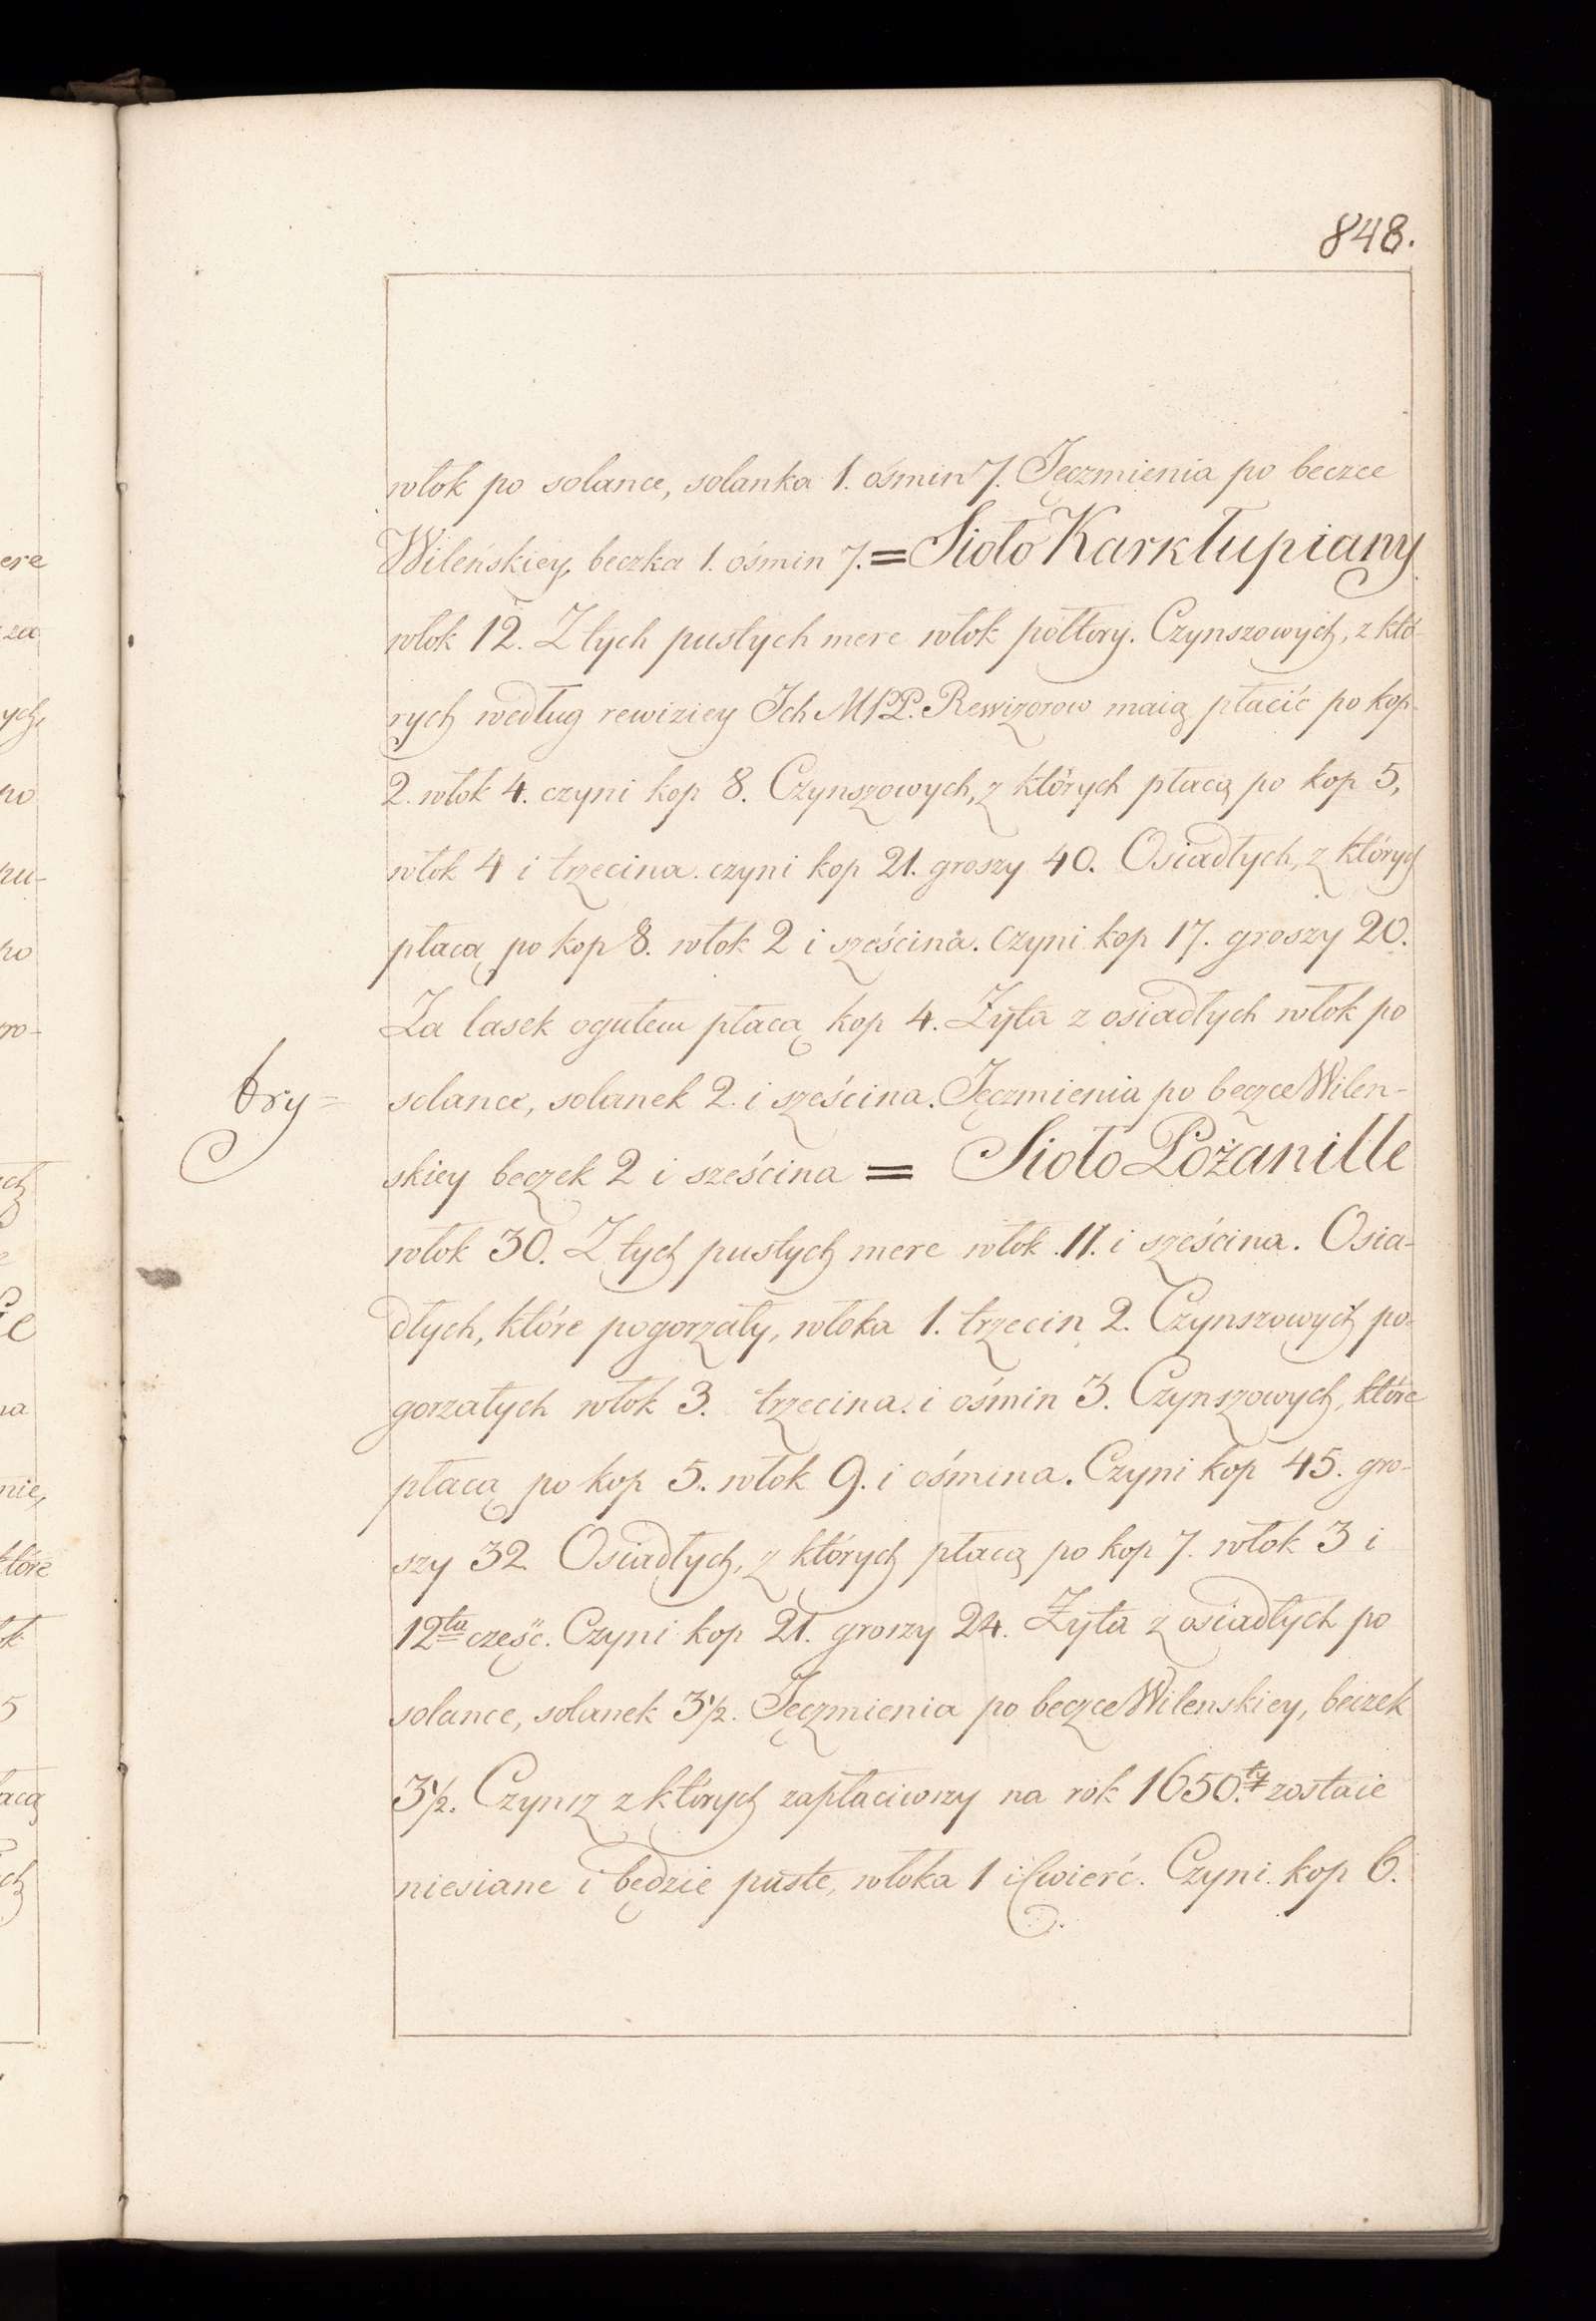 848.
włok po solance, solanka 1. ośmin 7. Jęczmienia po beczce
Wileńskiey, beczka 1. ośmin 7. = Sioło Karkłupiany
włok 12. Z tych pustych mere włok półtory. Czynszowych, z któ-
rych według rewiziey Ich MPP. Rewizorow maią płacić po kop
2. włok 4. czyni kop 8. Czynszowych, z których płacą po kop 5,
włok 4 i trzecina. czyni kop 21. groszy 40. Osiadłych, z których
płacą po kop 8. włok 2 i sześcina. czyni kop 17. groszy 20.
Za lasek ogułem płacą kop 4. Żyta z osiadłych włok po
solance, solanek 2. i sześcina. Jęczmienia po beczce Wilen-
bry =
skiey beczek 2 i sześcina = Sioło Pożanille
włok 30. Z tych pustych mere włok 11. i sześcina. Osia-
dłych, które pogorzały, włoka 1. trzecin 2. Czynszowych po-
gorzałych włok 3. trzecina. i ośmin 3. Czynszowych, które
płacą po kop 5. włok 9. i ośmina. Czyni kop 45. gro-
szy 32 Osiadłych, z których płacą po kop 7. włok 3 i
12ta częśc. Czyni kop 21. groszy 24. Żyta z osiadłych po
solance, solanek 3 1/2. Jęczmienia po beczce Wilenskiey, beczek
3 1/2. Czynsz z których zapłaciwszy na rok 1650.ty zostaie
niesiane i będzie puste, włoka 1 i Cwierć. Czyni kop 6.